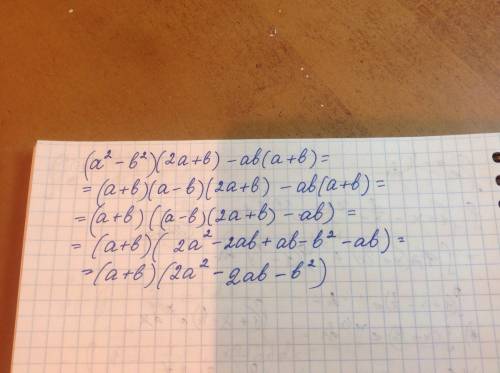 (a² - b²)(2a + b) - ab(a + b) =
= (a + b)(a - b)(2a + b) - ab(a + b) =
= (a + b)((a - b)(2a + b) - ab) =
= (a + b)(2a² - 2ab + ab - b² - ab) =
= (a + b)(2a² - 2ab - b²)